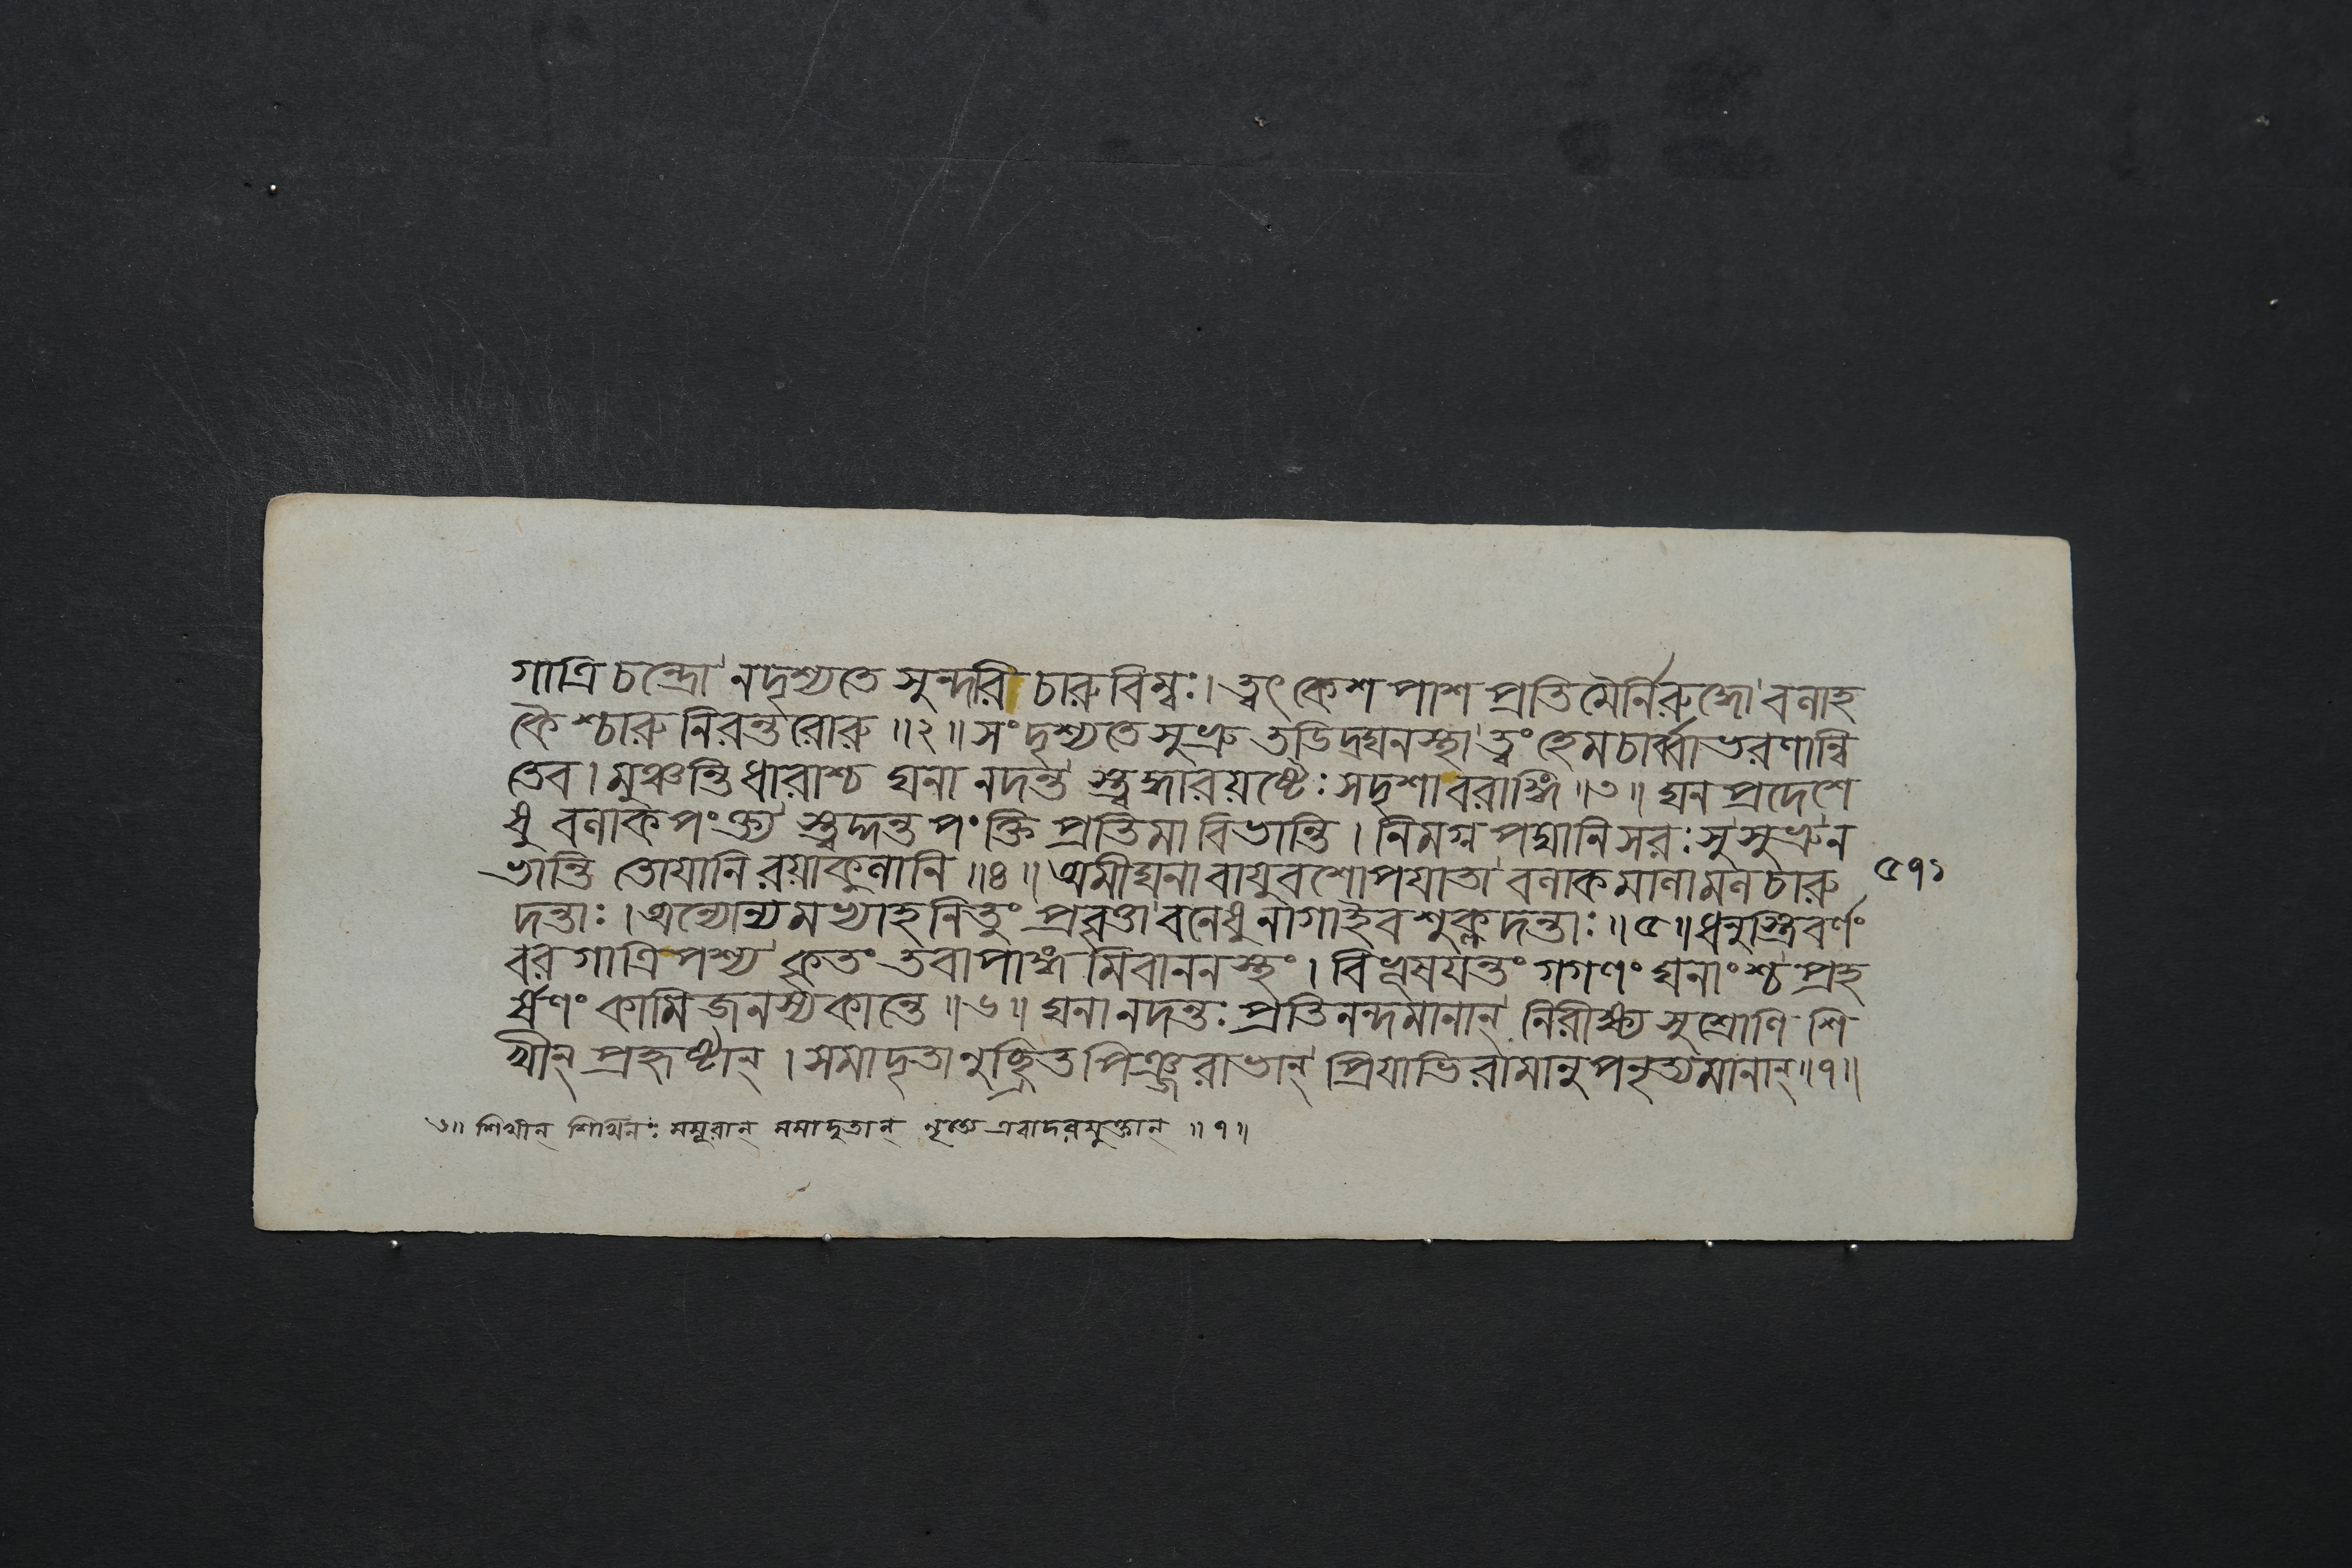 গাত্রি চন্দ্রো নদৃশ্যতে সুন্দরি চারুবিম্বঃ। ত্বৎ কেশ পাশ প্রতিমৈর্নিরুদ্ধো বলাহ
কৈ শ্চারু নিরর্ন্তরোরু ॥২॥ সংদৃশ্যতে সুভ্রু তডিদ্ঘনস্থা ত্বং হেমচার্ব্বাভরণান্বি
তেব। মুঞ্চন্তি ধারাশ্চ ঘনা নদন্ত স্ত্বদ্ধারয়ষ্টেঃ সদৃশাবরাঙ্গি ॥৩॥ ঘন প্রদেশে
ষু বলাক পংক্ত্য স্ত্বদ্দন্ত পংক্তি প্রতিমা বিভান্তি। নিমগ্ন পদ্মানি সরঃ সু সুভ্রু ন
ভান্তি তোযানি রয়াকুলানি ॥৪॥ অমীঘনা বায়ুবশোপযাতা বলাক মালামল চারু
দন্তাঃ। অন্যোন্য মভ্যাহনিতুং প্রবৃত্তা বনেষু নাগাইব শুক্লদন্তাঃ ॥৫॥ ধনুস্ত্রিবর্ণং
বর গাত্রি পশ্য কৃতং তবাপাঙ্গ মিবাননস্থং। বিভূষযন্তং গগণং ঘনাংশ্চ প্রহ
র্ষণং কামিজনস্য কান্তে ॥৬॥ ঘনা নদন্তঃ প্রতিনন্দমানান্ নিরীক্ষ্য সুশ্রোণি শি
খীন্ প্রহৃষ্টান্। সমাদৃতানুচ্ছ্রিত পিঞ্জরাভান্ প্রিযাভিরামানুপনৃত্যমানান্ ॥৭॥
৫৭১
৩॥ শিখীন্ শিখিনঃ ময়ূরান্ সমাদৃতান্ নৃত্যে এবাদরযুক্তান্ ॥৭॥